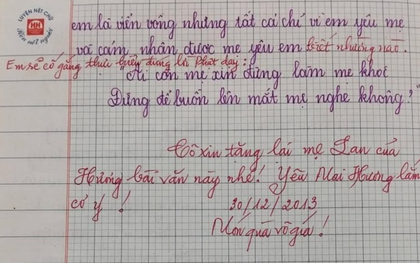 LUYỆN NÉT CHỮ
RÈN NẾT NGƯỜI
em là viển vông nhưng tất cả chỉ vì em yêu mẹ
và cảm nhận được mẹ yêu em biết nhường nào.
Em sẽ cố gắng thực hiện đúng lời Phật dạy:
"Ai còn mẹ xin đừng làm mẹ khóc
Đừng để buồn lên mắt mẹ nghe không"
Cô xin tặng lại mẹ Lan của
Hưng bài văn này nhé! Yêu Mai Hương lắm
cơ ý !
30/12/2013
Món quà vô giá!